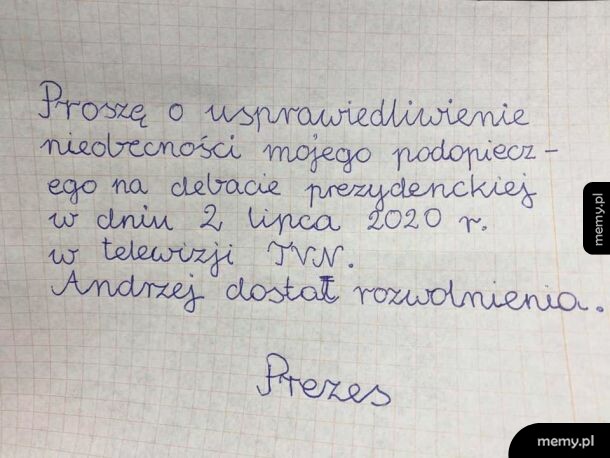 Proszę o usprawiedliwienie
nieobecności mojego podopiecz-
ego na debacie prezydenckiej
w dniu 2 lipca 2020 r.
w telewizji TVN.
Andrzej dostał rozwolnienia.
Prezes
memy.pl
memy.pl